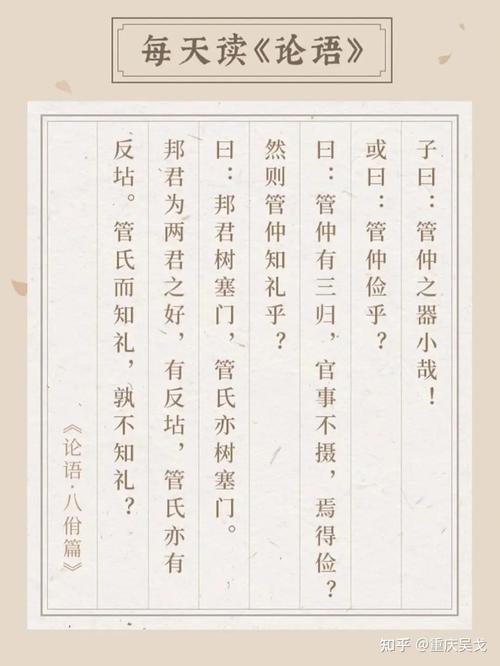 每天读《论语》
子曰：管仲之器小哉！
或曰：管仲俭乎？
曰：管仲有三归，官事不摄，焉得俭？
然则管仲知礼乎？
曰：邦君树塞门，管氏亦树塞门。
邦君为两君之好，有反坫，管氏亦有
反坫。管氏而知礼，孰不知礼？
《论语·八佾篇》
知乎 @重庆吴戈